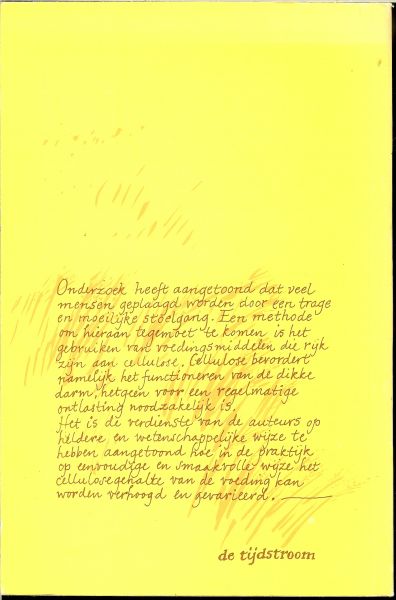 Onderzoek heeft aangetoond dat veel
mensen geplaagd worden door een trage
en moeilijke stoelgang. Een methode
om hieraan tegemoet te komen is het
gebruiken van voedingsmiddelen die rijk
zijn aan cellulose. Cellulose bevordert
namelijk het functioneren van de dikke
darm, hetgeen voor een regelmatige
ontlasting noodzakelijk is.
Het is de verdienste van de auteurs op
heldere en wetenschappelijke wijze te
hebben aangetoond hoe in de praktijk
op eenvoudige en smaakvolle wijze het
cellulosegehalte van de voeding kan
worden verhoogd en gevarieerd.
de tijdstroom